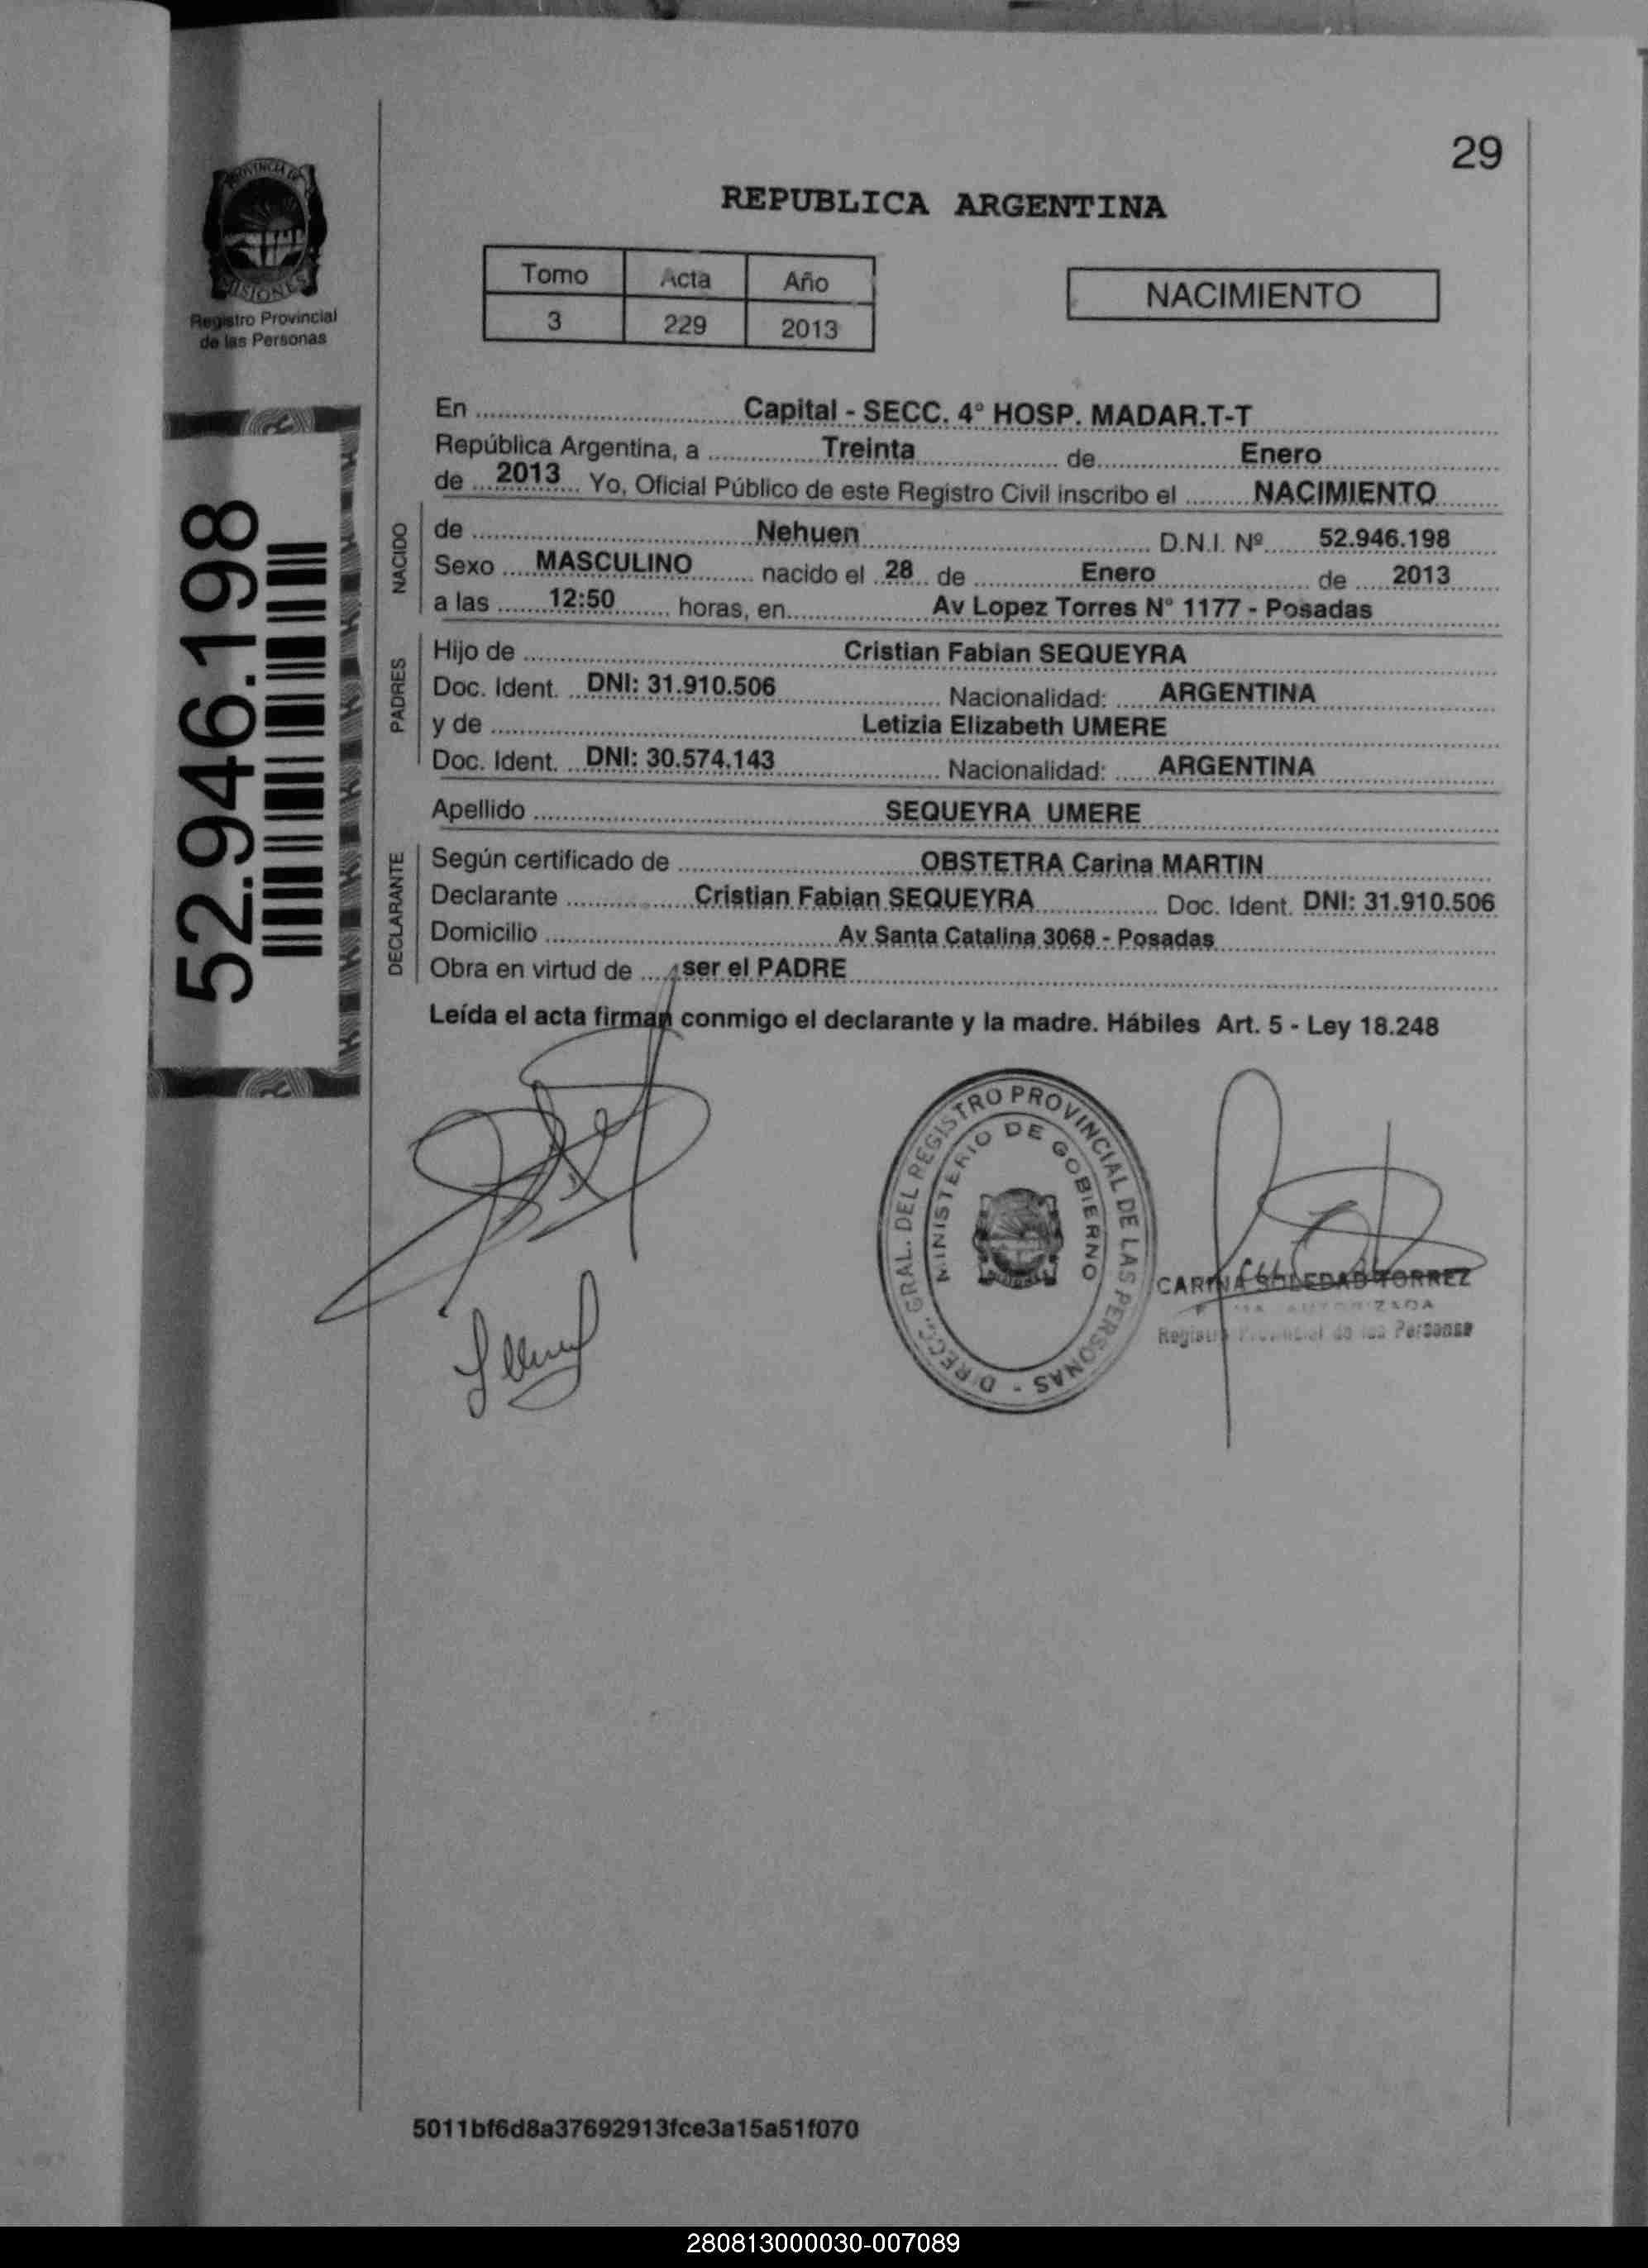 29
PROVINCIA DE
MISIONES
Registro Provincial
de las Personas
REPUBLICA ARGENTINA
Tomo Acta Año
3 229 2013
NACIMIENTO
52.946.198
En Capital - SECC. 4° HOSP. MADAR.T-T
República Argentina, a Treinta de Enero
de 2013 Yo, Oficial Público de este Registro Civil inscribo el NACIMIENTO
NACIDO
de Nehuen D.N.I. Nº 52.946.198
Sexo MASCULINO nacido el 28 de Enero de 2013
a las 12:50 horas, en Av Lopez Torres N° 1177 - Posadas
PADRES
Hijo de Cristian Fabian SEQUEYRA
Doc. Ident. DNI: 31.910.506 Nacionalidad: ARGENTINA
y de Letizia Elizabeth UMERE
Doc. Ident. DNI: 30.574.143 Nacionalidad: ARGENTINA
Apellido SEQUEYRA UMERE
DECLARANTE
Según certificado de OBSTETRA Carina MARTIN
Declarante Cristian Fabian SEQUEYRA Doc. Ident. DNI: 31.910.506
Domicilio Av Santa Catalina 3068 - Posadas
Obra en virtud de ser el PADRE
Leída el acta firman conmigo el declarante y la madre. Hábiles Art. 5 - Ley 18.248
DIRECC. GRAL. DEL REGISTRO PROVINCIAL DE LAS PERSONAS -
MINISTERIO DE GOBIERNO
CARINA SOLEDAD TORREZ
AUTORIZADA
Registro Provincial de las Personas
5011bf6d8a37692913fce3a15a51f070
280813000030-007089